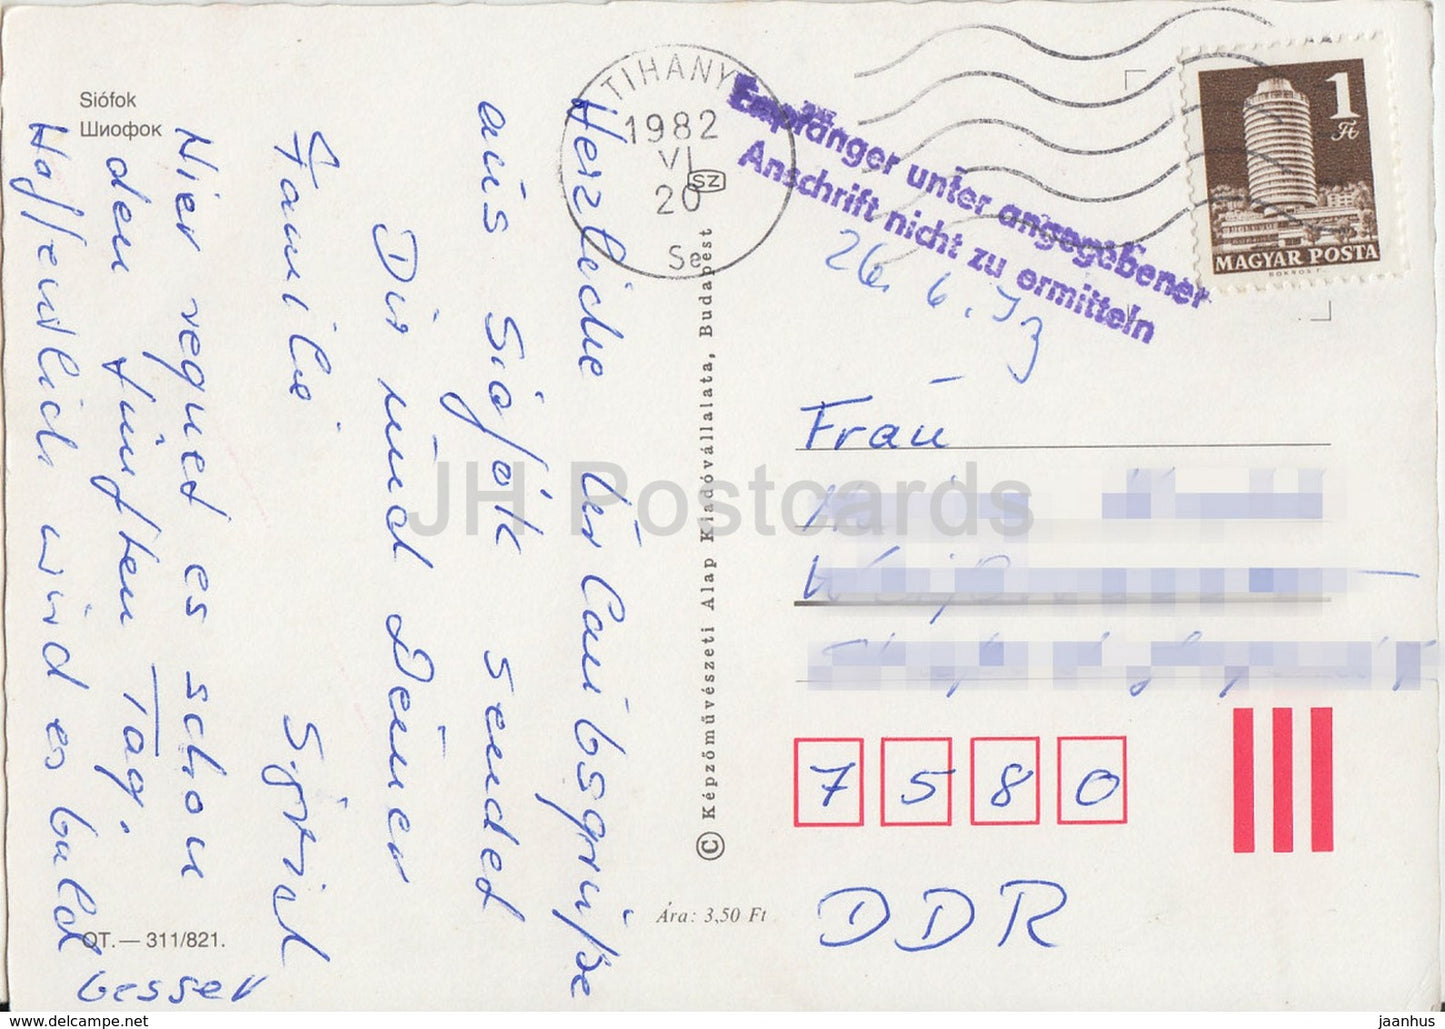 Siófok
Шиофок
TIHANY
1982
VI
20
SZ
Se
Empfänger unter angegebener
Anschrift nicht zu ermitteln
1
Ft
MAGYAR POSTA
26. 6.
Herzliche Urlaubsgrüße
aus Siófok sendet
Dir und Deiner
Familie Sigrid
Hier regnet es schon
den fünften Tag.
Hoffentlich wird es bald
besser
© Képzőművészeti Alap Kiadóvállalata, Budapest
Ára: 3,50 Ft
OT. — 311/821.
Frau
7 5 8 0
DDR
JH Postcards
www.delcampe.net
jaanhus